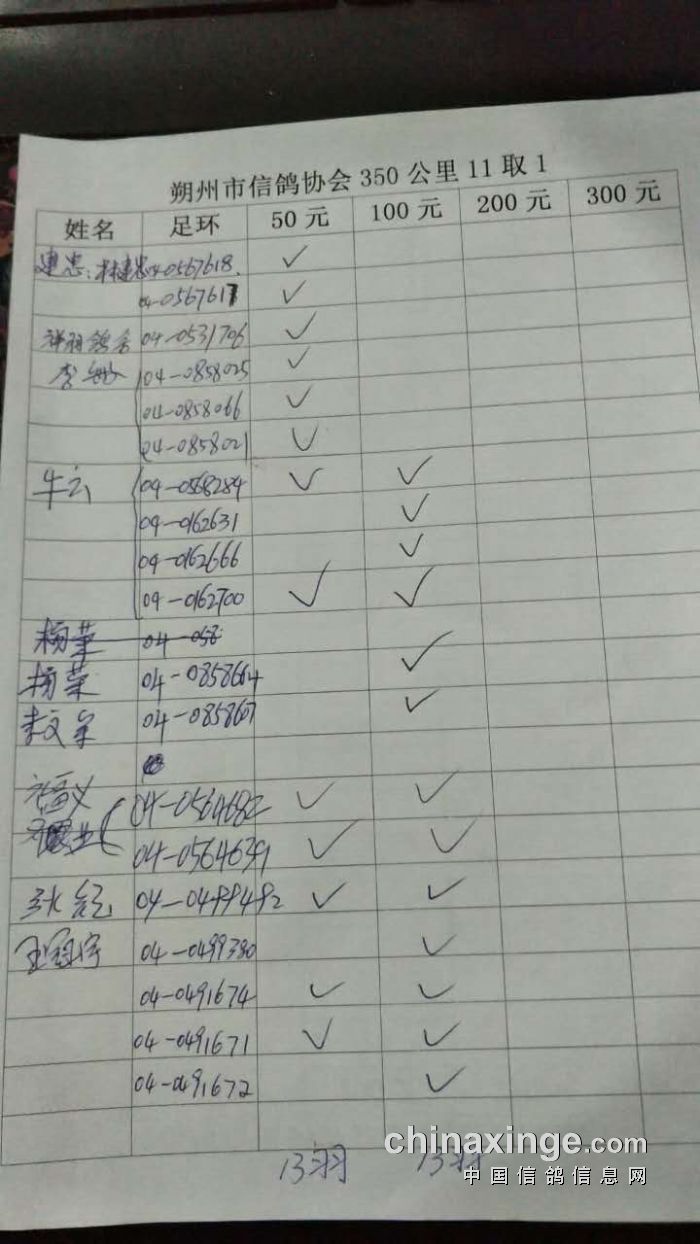 朔州市信鸽协会 350 公里 11 取 1
姓名 足环 50 元 100 元 200 元 300 元
建忠: 林建忠 04-0567618. ✓
04-0567617 ✓
祥羽鸽舍 04-0531706 ✓
李 04-0858025 ✓
04-0858066 ✓
04-0858021 ✓
牛云 04-0568284 ✓ ✓
04-0162631 ✓
04-0162666 ✓
04-0162700 ✓ ✓
杨荣 04-058
杨荣 04-0858664 ✓
李文 04-0858607 ✓
04-0564682 ✓ ✓
04-0564639 ✓ ✓
04-0499492 ✓ ✓
王冠宇 04-0499380 ✓
04-0491674 ✓ ✓
04-0491671 ✓ ✓
04-0491672 ✓
13羽 13羽
chinaxinge.com
中国信鸽信息网